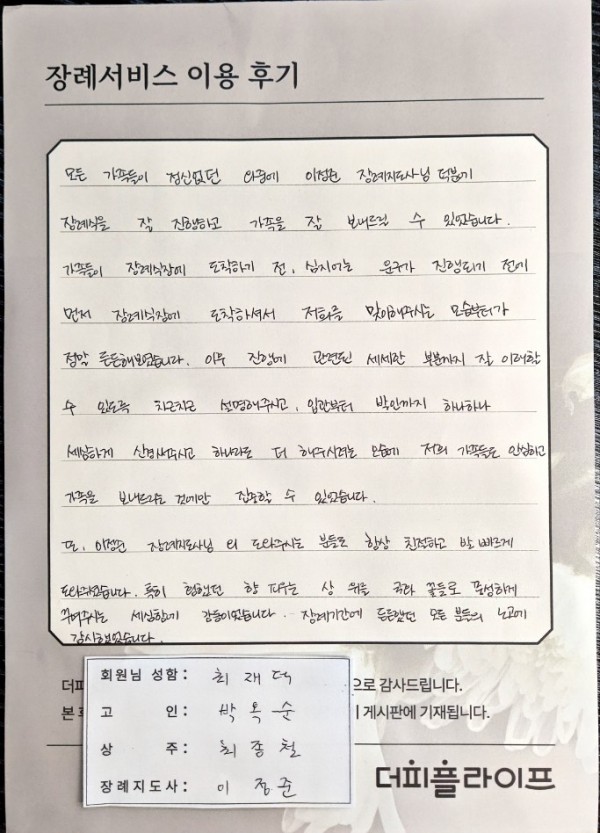 장례서비스 이용 후기
모든 가족들이 정신없던 와중에 이정준 장례지도사님 덕분에
장례식을 잘 진행하고 가족을 잘 보내드릴 수 있었습니다.
가족들이 장례식장에 도착하기 전, 심지어는 운구가 진행되기 전에
먼저 장례식장에 도착하셔서 저희를 맞이해주시는 모습부터가
정말 든든해보였습니다. 이후 진행에 관련된 세세한 부분까지 잘 이해할
수 있도록 차근차근 설명해주시고, 입관부터 발인까지 하나하나
세심하게 신경써주시고 하나라도 더 해주시려는 모습에 저희 가족들은 안심하고
가족을 보내드리는 것에만 집중할 수 있었습니다.
또, 이정준 장례지도사님 외 도와주시는 분들도 항상 친절하고 발 빠르게
도와주셨습니다. 특히 휑했던 향 피우는 상 위를 국화 꽃들로 풍성하게
꾸며주시는 세심함에 감동이었습니다. 장례기간에 든든했던 모든 분들의 노고에
감사했었습니다.
더피 으로 감사드립니다.
본 게시판에 기재됩니다.
회원님 성함: 최재덕
고 인: 박옥순
상 주: 최종철
장례지도사: 이정준
더피플라이프